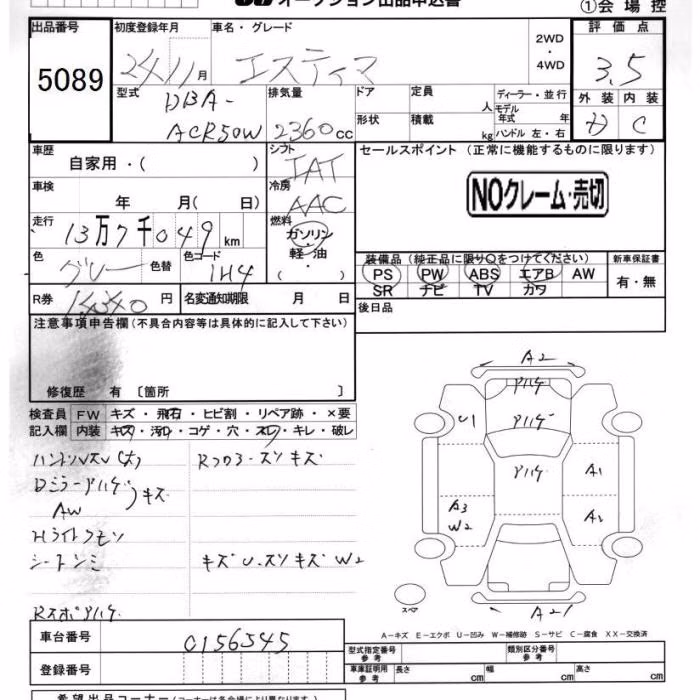 オークション出品申込書
①会場控
出品番号
5089
初度登録年月
24 11月
車名・グレード
エスティマ
2WD
・
4WD
評価点
3.5
外装 内装
D C
型式
DBA-
ACR50W
排気量
2360cc
ドア
定員
人
ディーラー・並行
モデル
年式 年
形状
積載
kg
ハンドル 左・右
車歴
自家用・( )
シフト
IAT
セールスポイント (正常に機能するものに限ります)
NOクレーム・売切
車検
年 月( 日)
冷房
AAC
走行
13万7千049km
燃料
ガソリン・
軽・油
( ・ )
色
グレー
色替
色コード
1H4
装備品(純正品に限り○をつけてください)
PS PW ABS エアB AW
SR ナビ TV カワ
新車保証書
有・無
R券
円
名変通知期限 月 日
後日品
注意事項申告欄(不具合内容等は具体的に記入して下さい)
修復歴 有 〔箇所 〕
検査員 FW キズ・飛石・ヒビ割・リペア跡・×要
記入欄 内装 キズ・汚れ・コゲ・穴・スレ・キレ・破レ
ハンドルスレ(大)
Dミラーアハゲ
AW
キズ
シートシミ
キズU.スリキズW2
A2
アハゲ
アハゲ
U1
アハゲ
A1
A3
W2
スペア
A-キズ E-エクボ U-凹み W-補修跡 S-サビ C-腐食 XX-交換済
車台番号
0156545
登録番号
型式指定番号
参考
類別区分番号
参考
車庫証明用
参考
長さ cm
幅 cm
高さ cm
希望出品コーナー